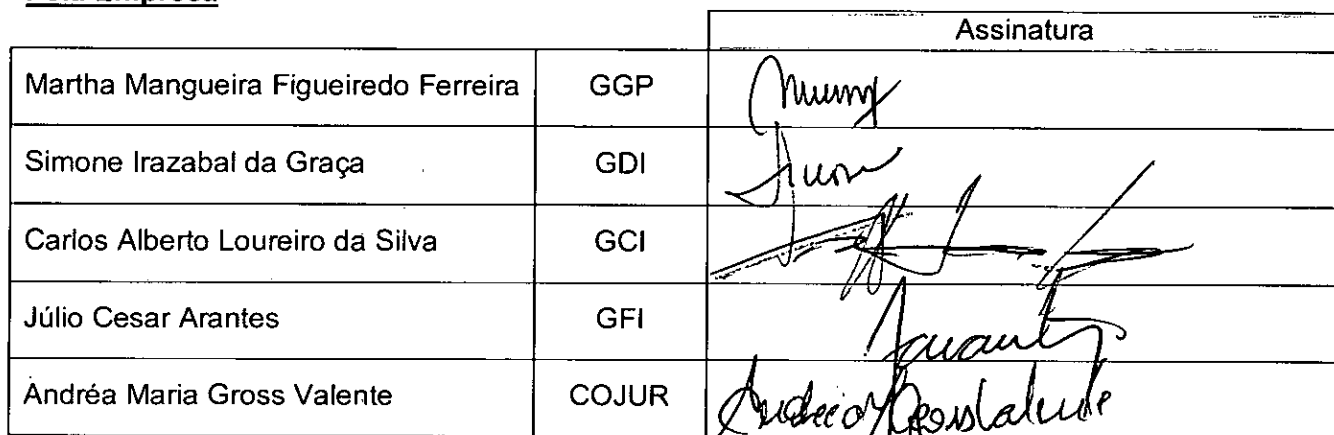 Assinatura
Martha Mangueira Figueiredo Ferreira GGP
Simone Irazabal da Graça GDI
Carlos Alberto Loureiro da Silva GCI
Júlio Cesar Arantes GFI
Andréa Maria Gross Valente COJUR